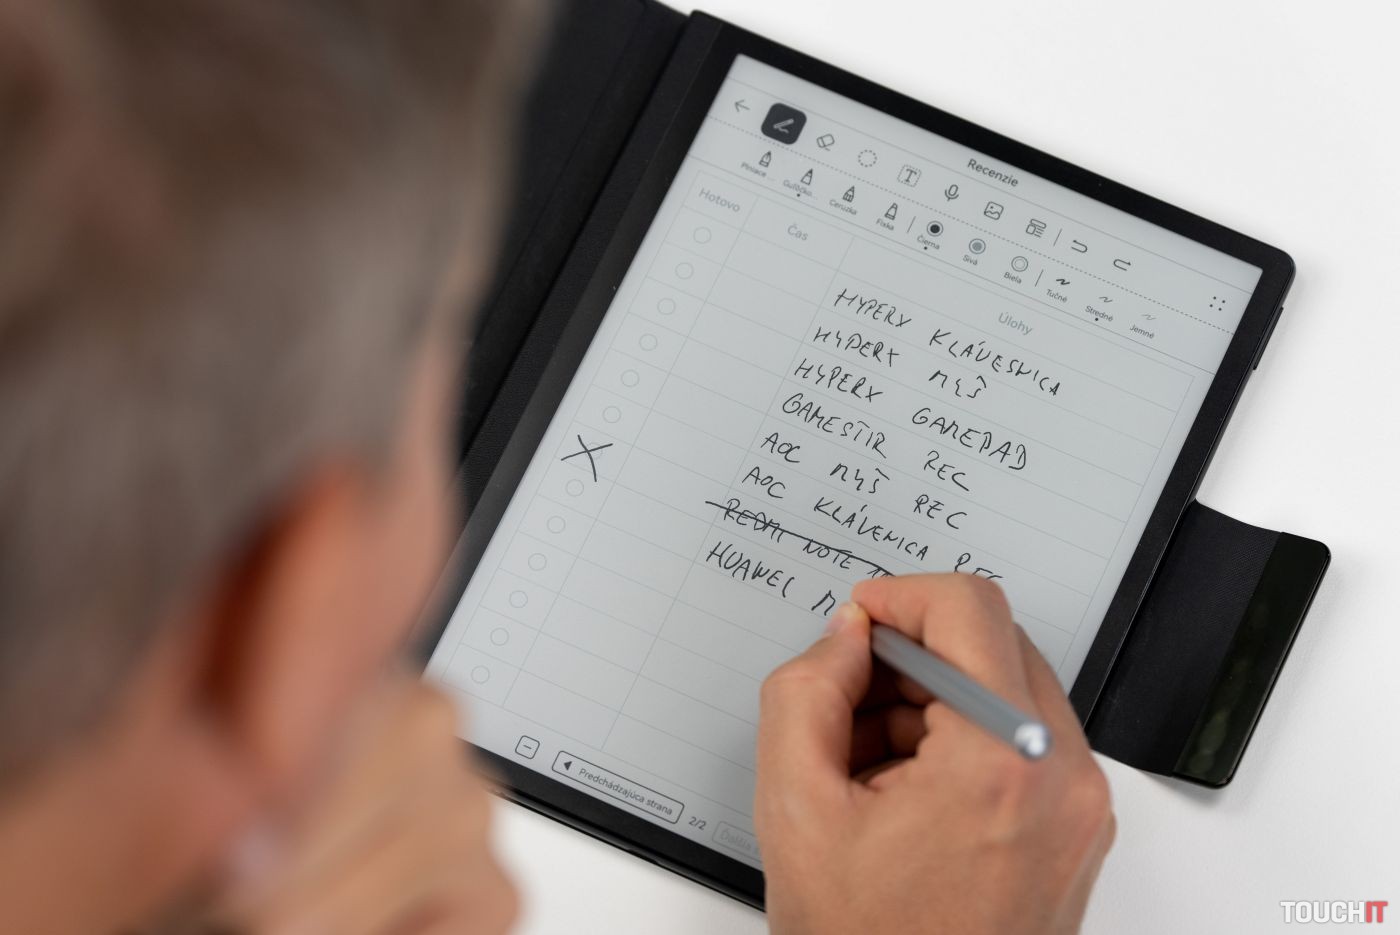 Recenzie
Plniace ...
Guľôčko...
Ceruzka
Fixka
Čierna
Sivá
Biela
Tučné
Stredné
Jemné
Hotovo
Čas
Úlohy
HYPERX KLÁVESNICA
HYPERX MYŠ
HYPERX GAMEPAD
GAMESTIR REC
AOC MYŠ REC
AOC KLÁVENICA REC
REDMI NOTE
HUAWEI M
Predchádzajúca strana
2/2
Ďalšia
TOUCHIT